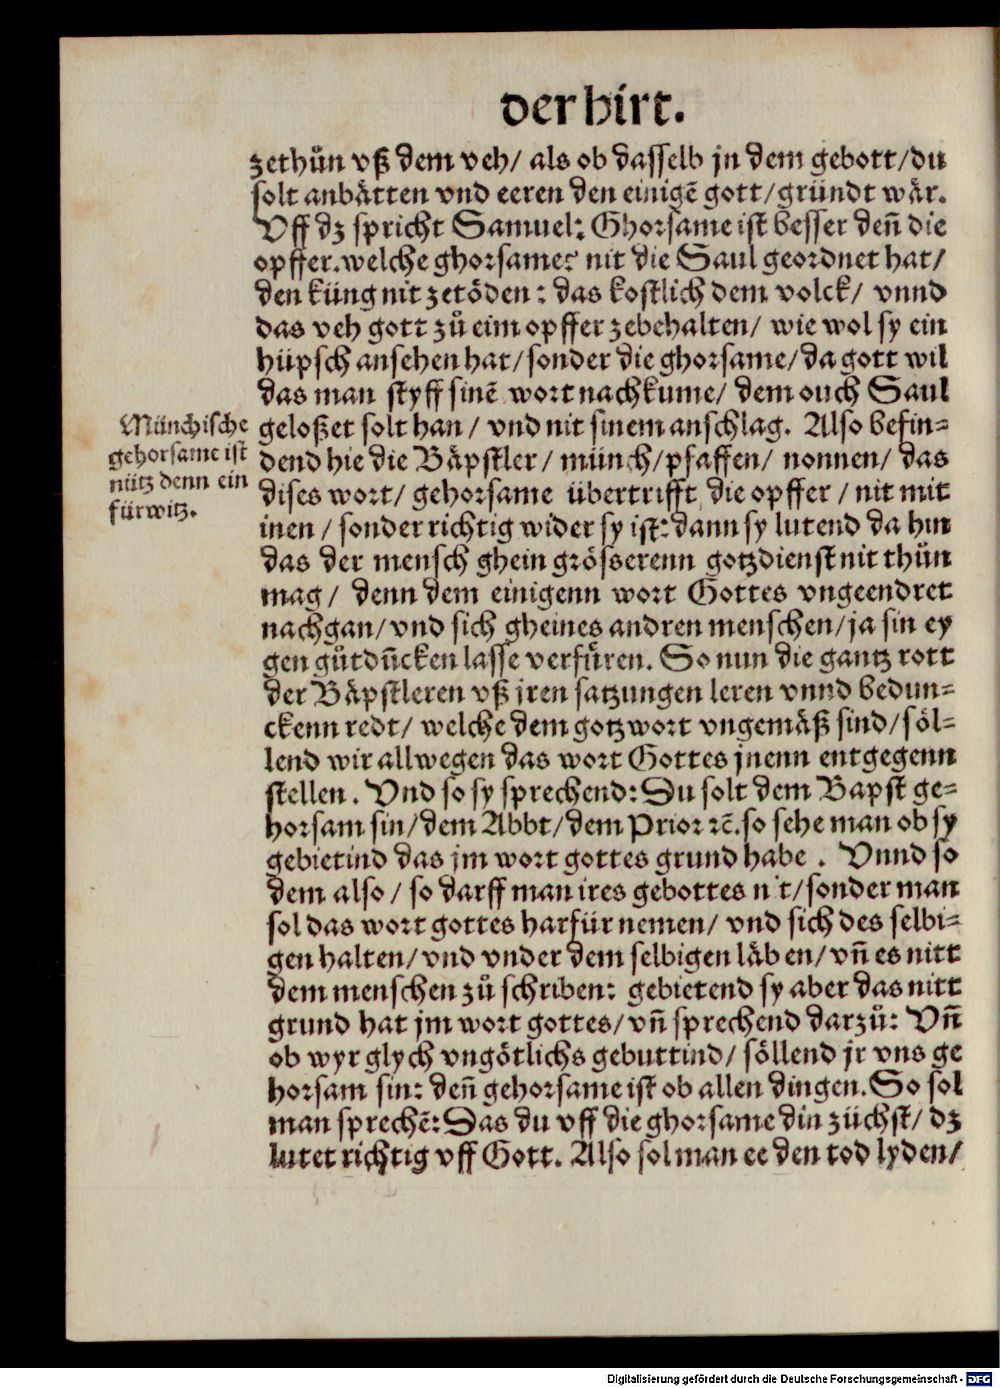 der hirt.
zethůn vß dem veh/ als ob dasselb jn dem gebott/du
solt anbätten vnd eeren den einigē gott/gründt wär.
Vff dz spricht Samuel: Ghorsame ist besser deñ die
opffer. welche ghorsame? nit die Saul geordnet hat/
den küng nit zetöden: das kostlich dem volck/ vnnd
das veh gott zů eim opffer zebehalten/ wie wol sy ein
hüpsch ansehen hat/sonder die ghorsame/da gott wil
das man styff sinē wort nachkume/ dem ouch Saul
geloßet solt han/ vnd nit sinem anschlag. Also befin⸗
dend hie die Bäpstler/ münch/pfaffen/ nonnen/ das
dises wort/ gehorsame übertrifft die opffer/ nit mit
inen/ sonder richtig wider sy ist: dann sy lutend da hin
das der mensch ghein grösserenn gotzdienst nit thůn
mag/ denn dem einigenn wort Gottes vngeendret
nachgan/vnd sich gheines andren menschen/ja sin ey
gen gůtduncken lasse verfüren. So nun die gantz rott
der Bäpstleren vß jren satzungen leren vnnd bedun⸗
ckenn redt/ welche dem gotzwort vngemäß sind/söl⸗
lend wir allwegen das wort Gottes jnenn entgegenn
stellen. Vnd so sy sprechend: Du solt dem Bapst ge⸗
horsam sin/dem Abbt/dem Prior ꝛc̄. so sehe man ob sy
gebietind das jm wort gottes grund habe. Vnnd so
dem also/ so darff man ires gebottes nit/sonder man
sol das wort gottes harfür nemen/ vnd sich des selbi⸗
gen halten/vnd vnder dem selbigen läben/vñ es nitt
dem menschen zů schriben: gebietend sy aber das nitt
grund hat jm wort gottes/vñ sprechend darzů: Vñ
ob wyr glych vngötlichs gebuttind/ söllend jr vns ge
horsam sin: deñ gehorsame ist ob allen dingen. So sol
man sprechē: Das du vff die ghorsame din züchst/ dz
lutet richtig vff Gott. Also sol man ee den tod lyden/
Münchische
gehorsame ist
nütz denn ein
fürwitz.
Digitalisierung gefördert durch die Deutsche Forschungsgemeinschaft - DFG